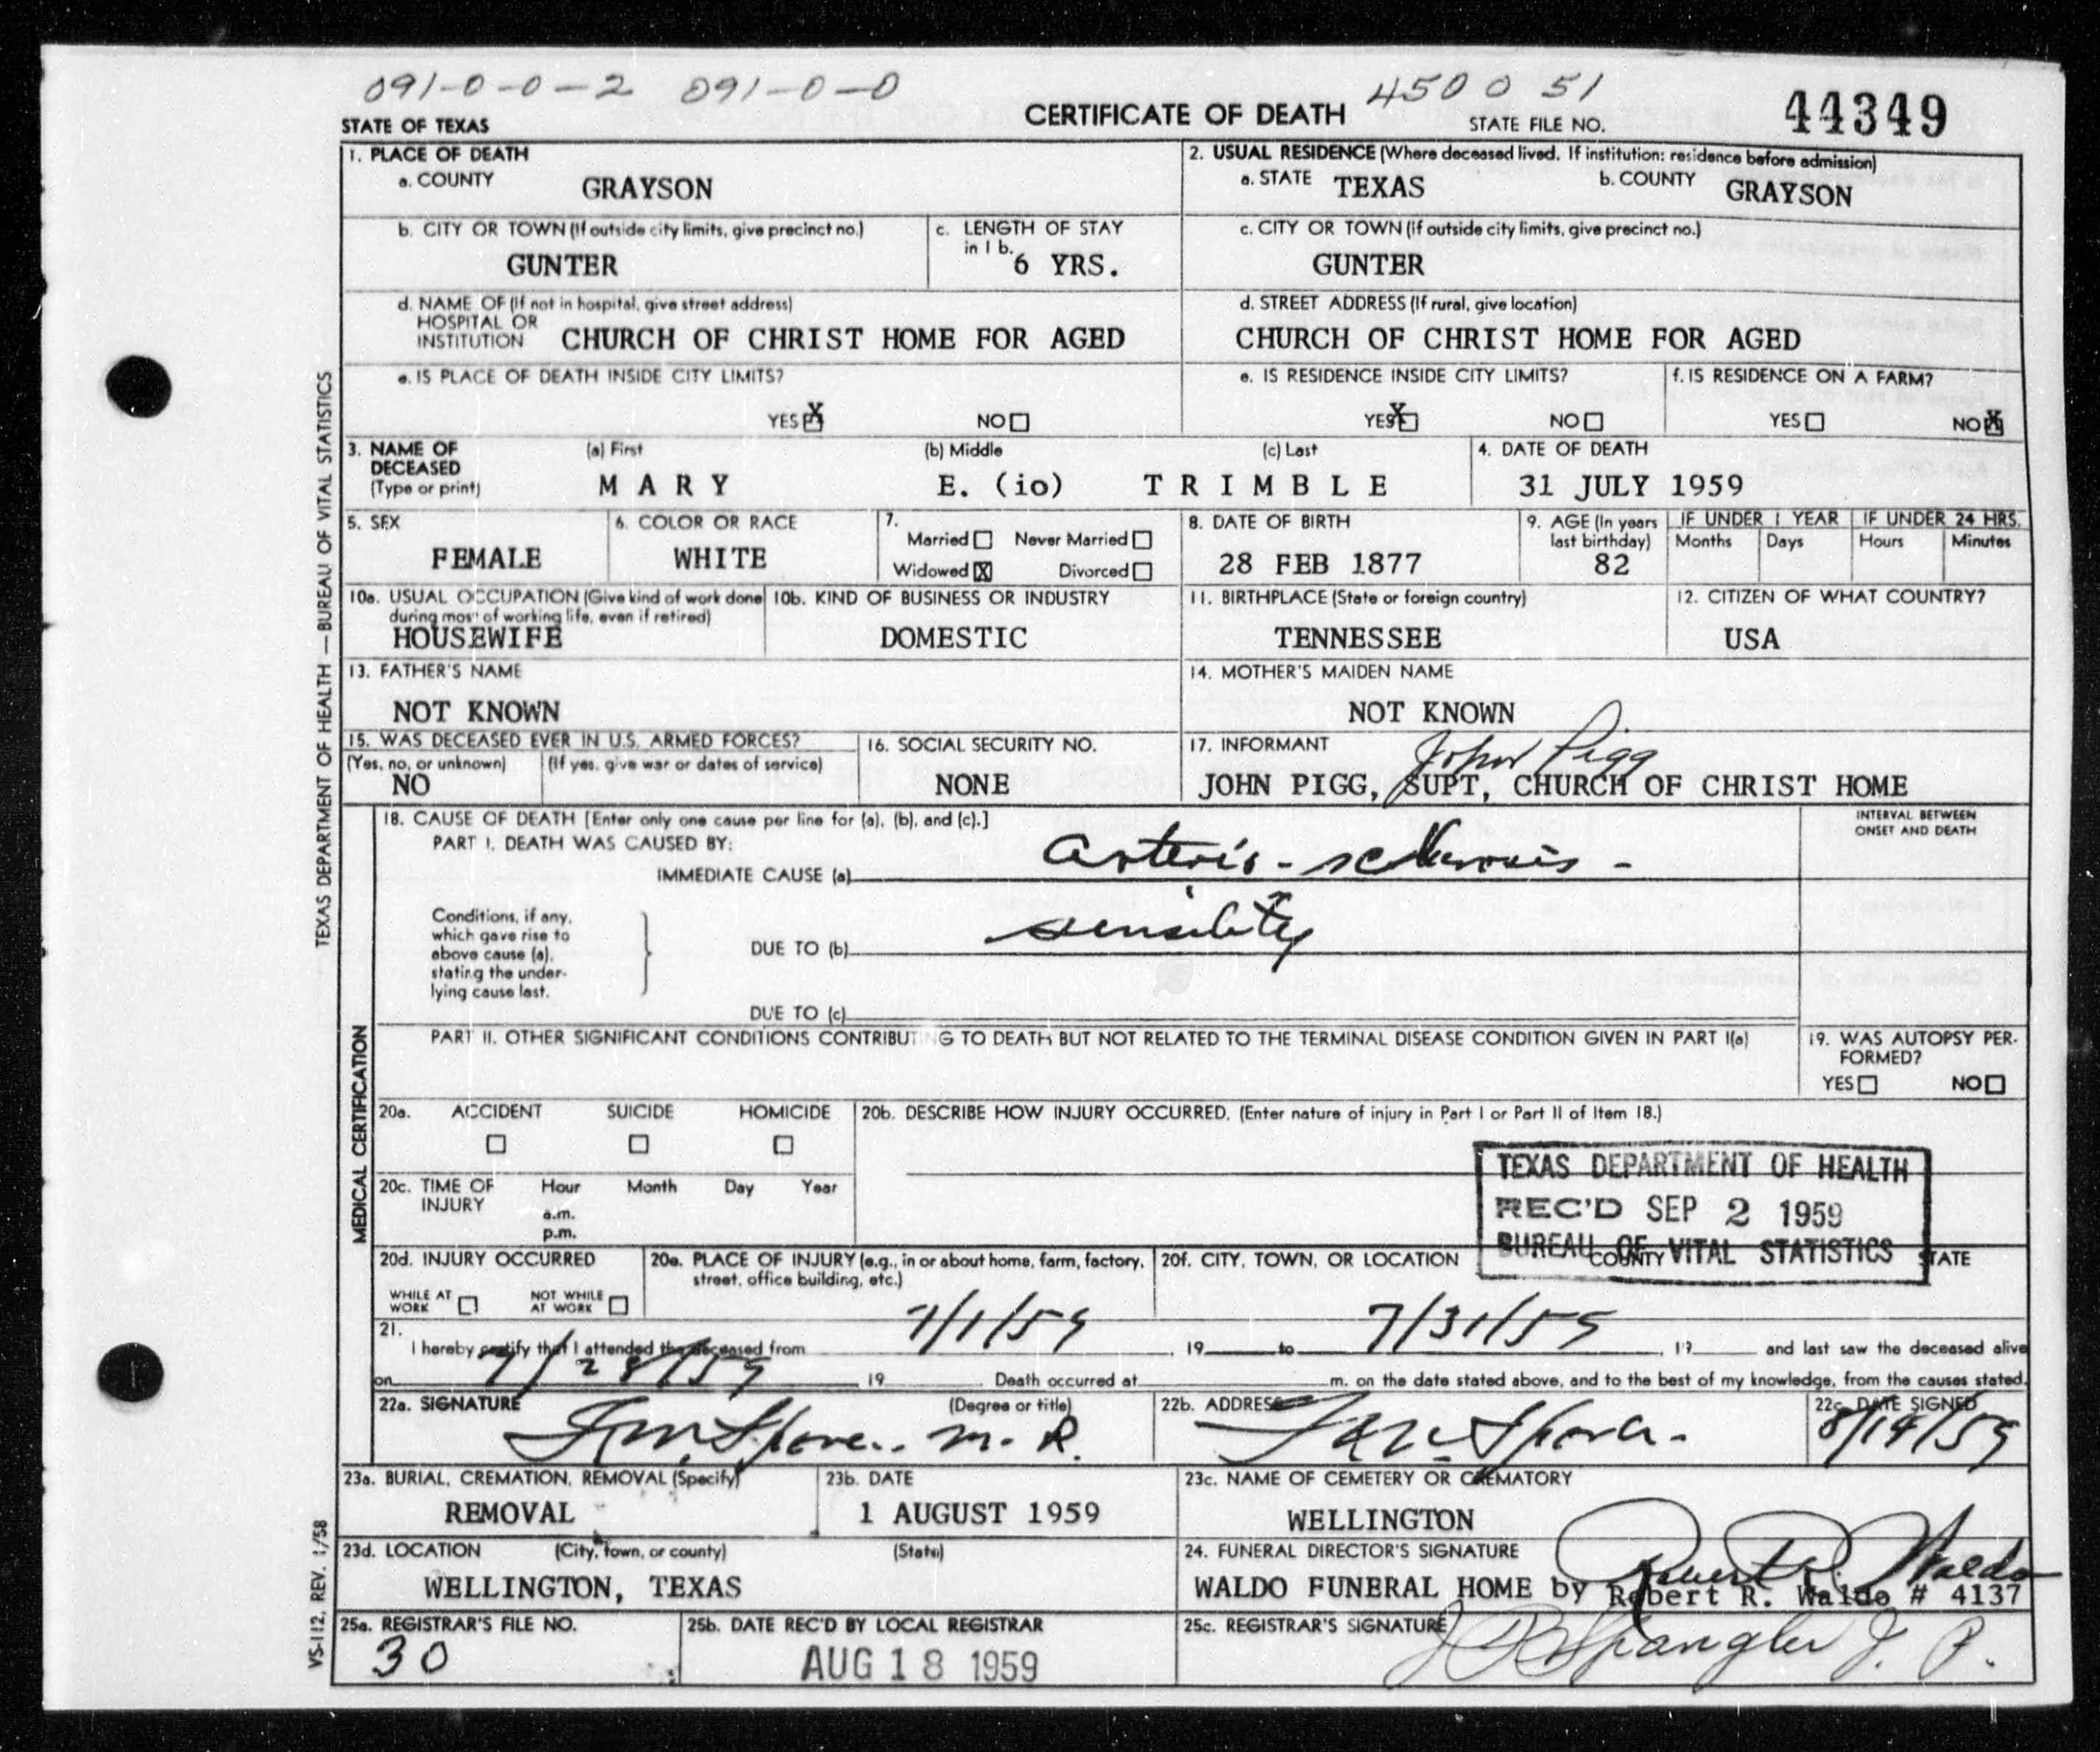 091-0-0-2 091-0-0 450 0 51
STATE OF TEXAS CERTIFICATE OF DEATH STATE FILE NO. 44349
1. PLACE OF DEATH
a. COUNTY GRAYSON
2. USUAL RESIDENCE (Where deceased lived. If institution: residence before admission)
a. STATE TEXAS b. COUNTY GRAYSON
b. CITY OR TOWN (If outside city limits, give precinct no.)
GUNTER
c. LENGTH OF STAY
in 1 b. 6 YRS.
c. CITY OR TOWN (If outside city limits, give precinct no.)
GUNTER
d. NAME OF (If not in hospital, give street address)
HOSPITAL OR
INSTITUTION CHURCH OF CHRIST HOME FOR AGED
d. STREET ADDRESS (If rural, give location)
CHURCH OF CHRIST HOME FOR AGED
e. IS PLACE OF DEATH INSIDE CITY LIMITS?
YES X NO
e. IS RESIDENCE INSIDE CITY LIMITS?
YES X NO
f. IS RESIDENCE ON A FARM?
YES NO X
3. NAME OF
DECEASED
(Type or print)
(a) First (b) Middle (c) Last
MARY E. (io) TRIMBLE
4. DATE OF DEATH
31 JULY 1959
5. SEX
FEMALE
6. COLOR OR RACE
WHITE
7.
Married Never Married
Widowed X Divorced
8. DATE OF BIRTH
28 FEB 1877
9. AGE (In years
last birthday)
82
IF UNDER 1 YEAR
Months Days
IF UNDER 24 HRS.
Hours Minutes
10a. USUAL OCCUPATION (Give kind of work done
during most of working life, even if retired)
HOUSEWIFE
10b. KIND OF BUSINESS OR INDUSTRY
DOMESTIC
11. BIRTHPLACE (State or foreign country)
TENNESSEE
12. CITIZEN OF WHAT COUNTRY?
USA
13. FATHER'S NAME
NOT KNOWN
14. MOTHER'S MAIDEN NAME
NOT KNOWN
15. WAS DECEASED EVER IN U.S. ARMED FORCES?
(Yes, no, or unknown) (If yes, give war or dates of service)
NO
16. SOCIAL SECURITY NO.
NONE
17. INFORMANT John Pigg
JOHN PIGG, SUPT, CHURCH OF CHRIST HOME
18. CAUSE OF DEATH [Enter only one cause per line for (a), (b), and (c).]
PART I. DEATH WAS CAUSED BY:
IMMEDIATE CAUSE (a) Arterio-sclerosis -
INTERVAL BETWEEN
ONSET AND DEATH
Conditions, if any,
which gave rise to
above cause (a),
stating the under-
lying cause last.
DUE TO (b) senility
DUE TO (c)
PART II. OTHER SIGNIFICANT CONDITIONS CONTRIBUTING TO DEATH BUT NOT RELATED TO THE TERMINAL DISEASE CONDITION GIVEN IN PART I(a)
19. WAS AUTOPSY PER-
FORMED?
YES NO
20a. ACCIDENT SUICIDE HOMICIDE
20b. DESCRIBE HOW INJURY OCCURRED. (Enter nature of injury in Part I or Part II of Item 18.)
20c. TIME OF
INJURY
Hour Month Day Year
a.m.
p.m.
TEXAS DEPARTMENT OF HEALTH
REC'D SEP 2 1959
BUREAU OF VITAL STATISTICS
20d. INJURY OCCURRED
WHILE AT
WORK
NOT WHILE
AT WORK
20e. PLACE OF INJURY (e.g., in or about home, farm, factory,
street, office building, etc.)
20f. CITY, TOWN, OR LOCATION COUNTY STATE
21.
I hereby certify that I attended the deceased from 7/1/59, 19 to 7/31/59, 19 and last saw the deceased alive
on 7/28/59 19 Death occurred at m. on the date stated above, and to the best of my knowledge, from the causes stated.
22a. SIGNATURE (Degree or title)
22b. ADDRESS
22c. DATE SIGNED
8/14/59
23a. BURIAL, CREMATION, REMOVAL (Specify)
REMOVAL
23b. DATE
1 AUGUST 1959
23c. NAME OF CEMETERY OR CREMATORY
WELLINGTON
23d. LOCATION (City, town, or county) (State)
WELLINGTON, TEXAS
24. FUNERAL DIRECTOR'S SIGNATURE Robert R. Waldo
WALDO FUNERAL HOME by Robert R. Waldo # 4137
25a. REGISTRAR'S FILE NO.
30
25b. DATE REC'D BY LOCAL REGISTRAR
AUG 18 1959
25c. REGISTRAR'S SIGNATURE
Spangler J. P.
TEXAS DEPARTMENT OF HEALTH — BUREAU OF VITAL STATISTICS
MEDICAL CERTIFICATION
VS-112, REV. 1/58